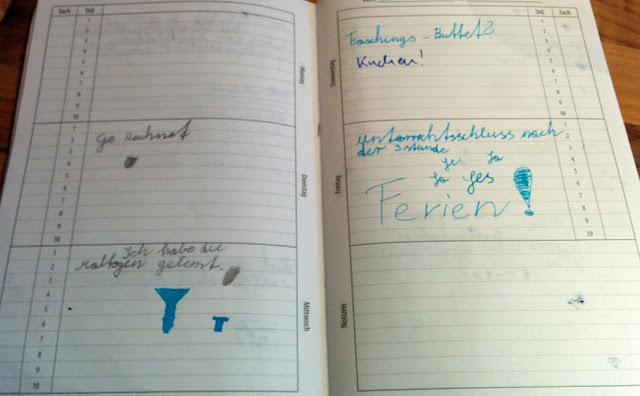 Fach Std.
1
2
3
4
5
6
7
8
9
10
Montag
1
2
3
4
5
6
7
8
9
10
Go Rechnet
Dienstag
1
2
3
4
5
6
7
8
9
10
Ich habe die
gelernt.
Mittwoch
Std. Fach
1
2
3
4
5
6
7
8
9
10
Faschings-Buffet?
Kuchen!
Donnerstag
1
2
3
4
5
6
7
8
9
10
unterrahtsschluss nach
der 3 stunde
yes Ja
Ja yes
Ferien!
Freitag
Notizen